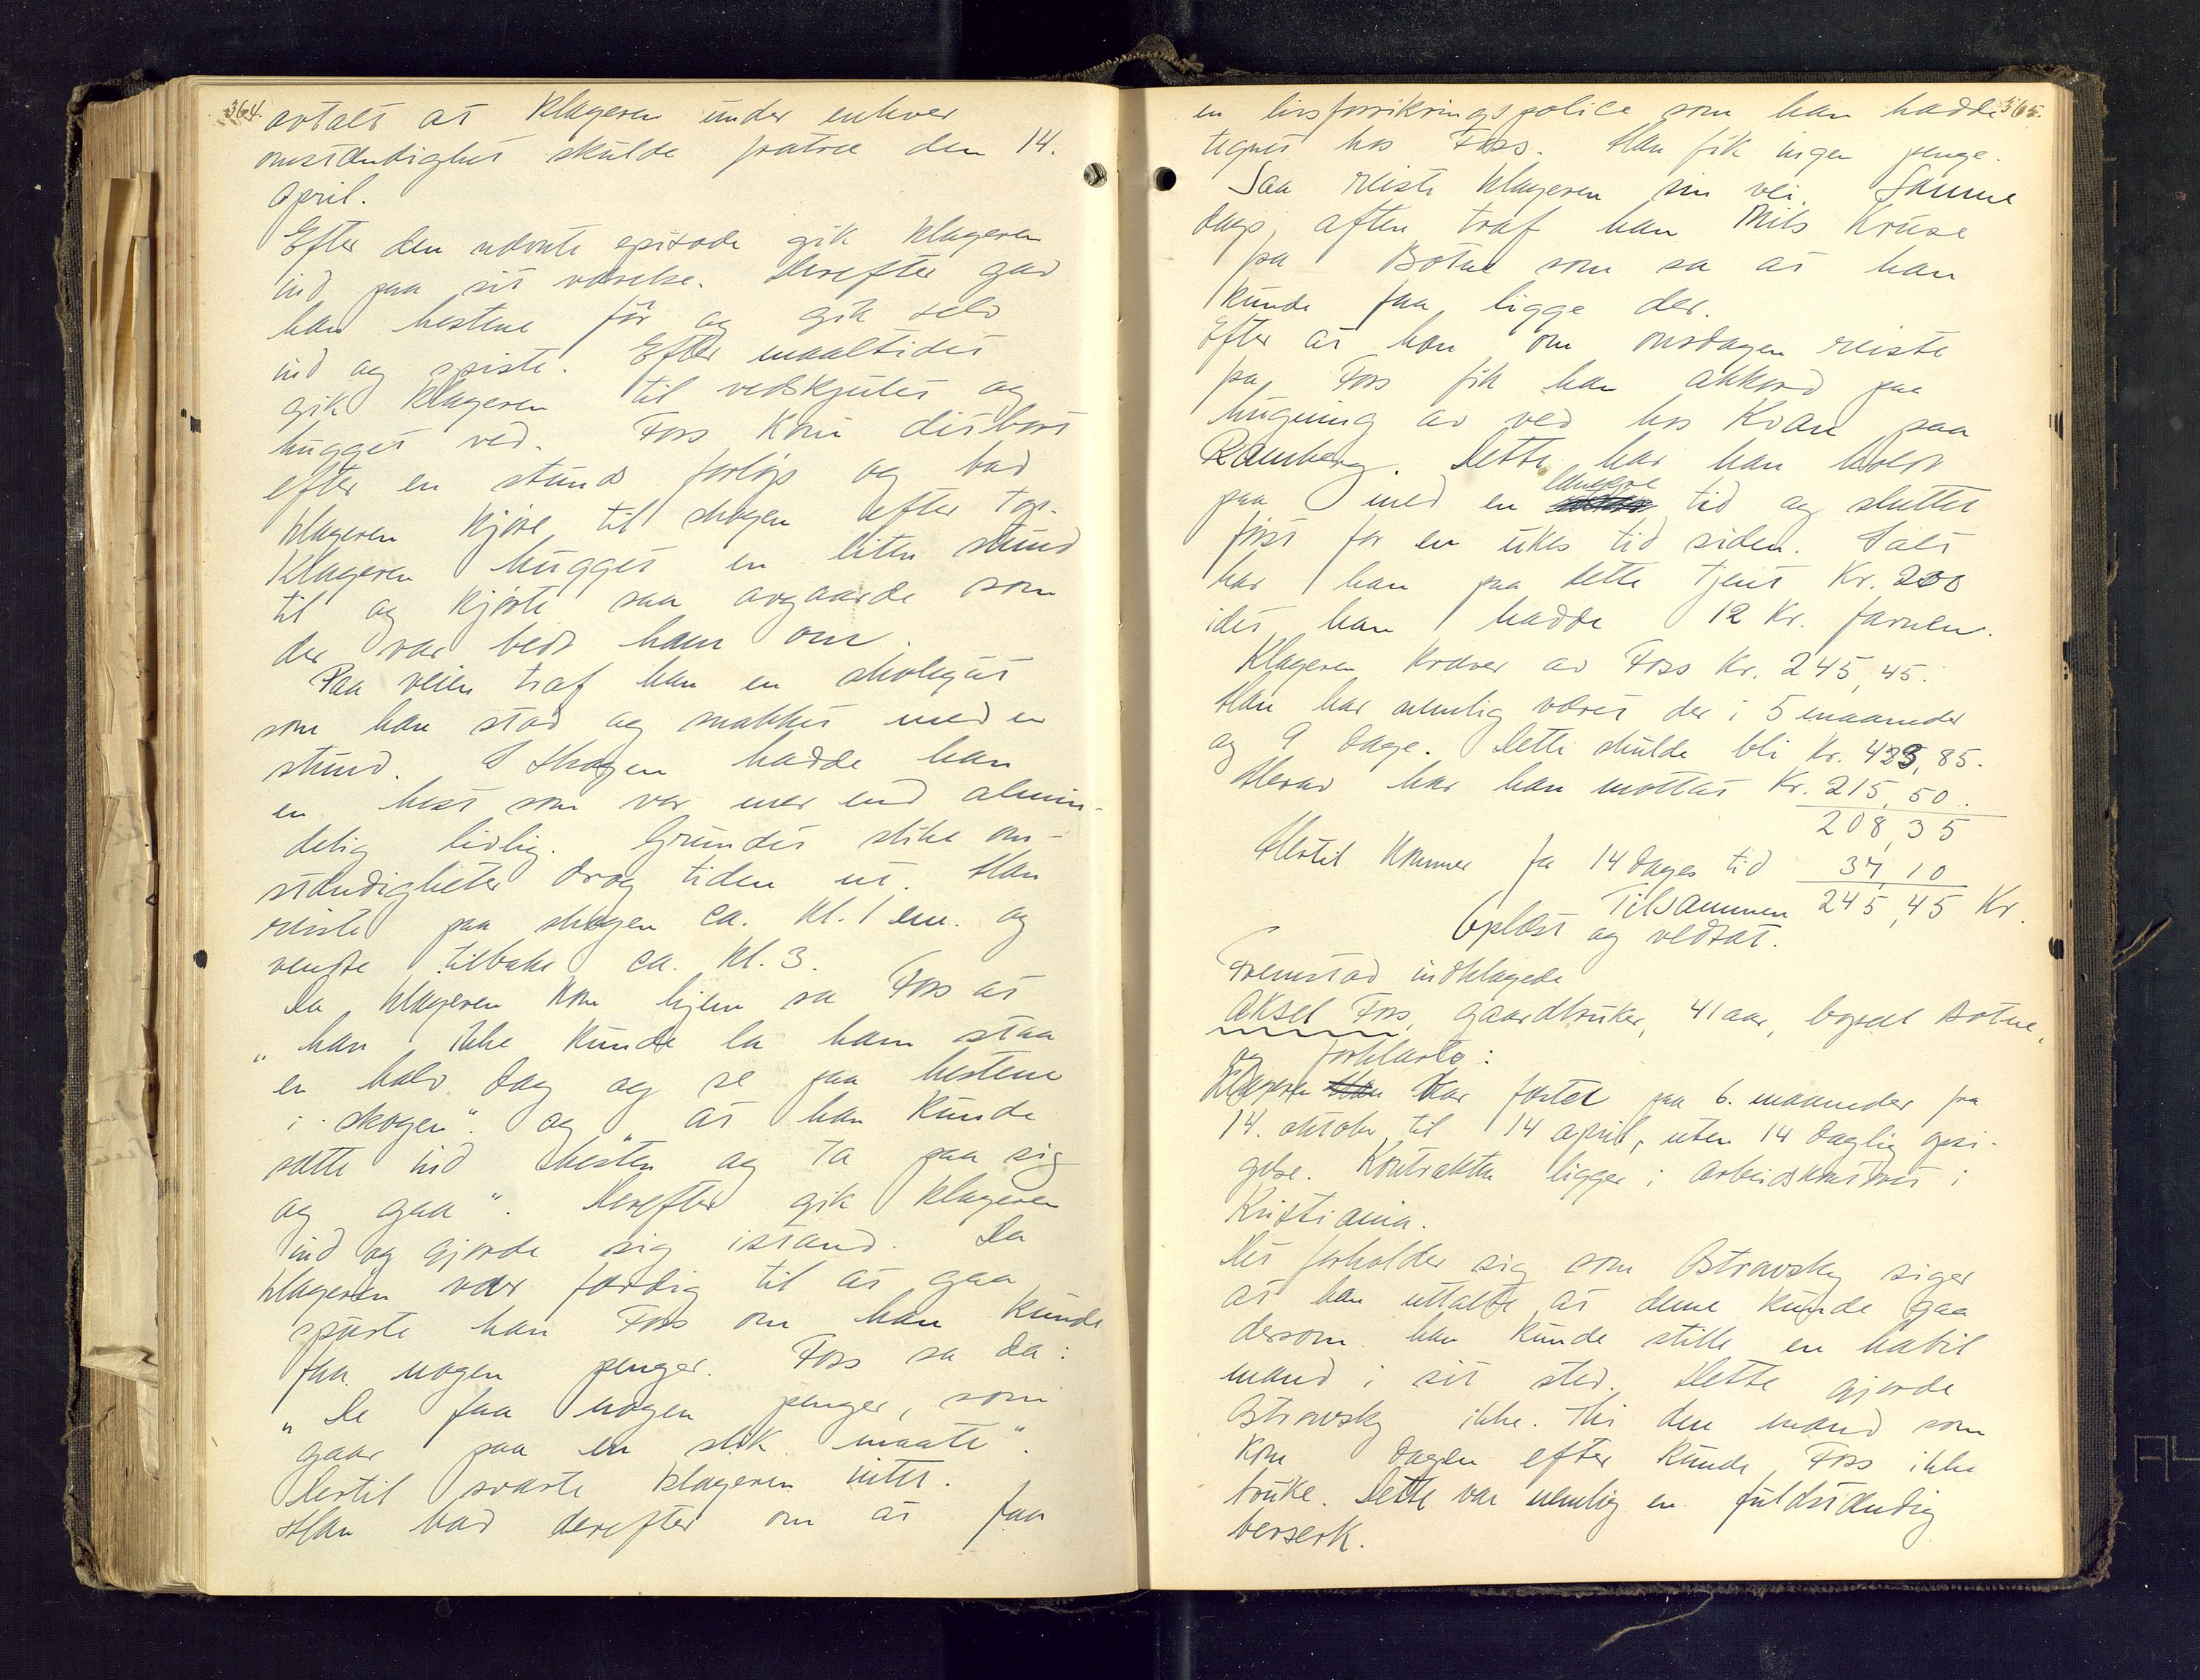 364.
avtalt at klageren under enhver
omstændighet skulde fratræ den 14.
april.
Efter den nævnte episode gik klageren
ind paa sit værelse. Derefter gav
han hestene fôr og gik selv
ind og spiste. Efter maaltidet
gik klageren til vedskjulet og
hugget ved. Foss kom ditbort
efter en stunds forløp og bad
klageren kjøre til skogen efter
Klageren hugget en liten stund
til og kjørte saa avgaarde som
der var bedt ham om.
Paa veien traf han en skolegut
som han stod og snakket med en
stund. I skogen hadde han
en hest som var mer end almin-
delig livlig. Grundet slike om-
stændigheter drog tiden ut. Han
reiste paa skogen ca. kl. 1 em. og
vendte tilbake ca. kl. 3.
Da klageren kom hjem sa Foss at
"han ikke kunde la ham staa
en halv dag og se paa hestene
i skogen". og "at han kunde
sætte ind hesten og ta paa sig
og gaa". Derefter gik klageren
ind og gjorde sig istand. Da
klageren var færdig til at gaa
spurte han Foss om han kunde
faa nogen penger. Foss sa da:
"De faa nogen penger, som
gaar paa en slik maate".
Hertil svarte klageren intet.
Han bad derefter om at faa
365.
en livsforsikringspolice som han hadde
tegnet hos Foss. Han fik ingen penge.
Saa reiste klageren sin vei. Samme
dags aften traf han Nils Kruse
fra Botne som sa at han
kunde faa ligge der.
Efter at han om onsdagen reiste
fra Foss fik han akkord paa
hugning av ved hos Kvan paa
Ramberg. Dette har han holdt
paa med en længere tid og sluttet
først for en ukes tid siden. Ialt
har han paa dette tjent Kr. 200
idet han hadde 12 Kr. favnen.
Klageren kræver av Foss Kr. 245,45.
Han har nemlig været der i 5 maaneder
og 9 dage. Dette skulde bli Kr. 423,85.
Herav har han mottat Kr. 215,50.
208,35
Hertil kommer for 14 dages tid 37,10
Tilsammen 245,45 Kr.
Oplæst og vedtat.
Fremstod indklagede
Aksel Foss, gaardbruker, 41 aar, bopæl Botne,
og forklarte:
Klageren var fæstet paa 6. maaneder fra
14. oktober til 14 april, uten 14 daglig opsi-
gelse. Kontrakten ligger i arbeidskontoret i
Kristiania.
Det forholder sig som Ostrawsky siger
at han uttalte at denne kunde gaa
dersom han kunde stille en habil
mand i sit sted. Dette gjorde
Ostrowsky ikke. Thi den mand som
kom dagen efter kunde Foss ikke
bruke. Dette var nemlig en fuldstændig
berserk.